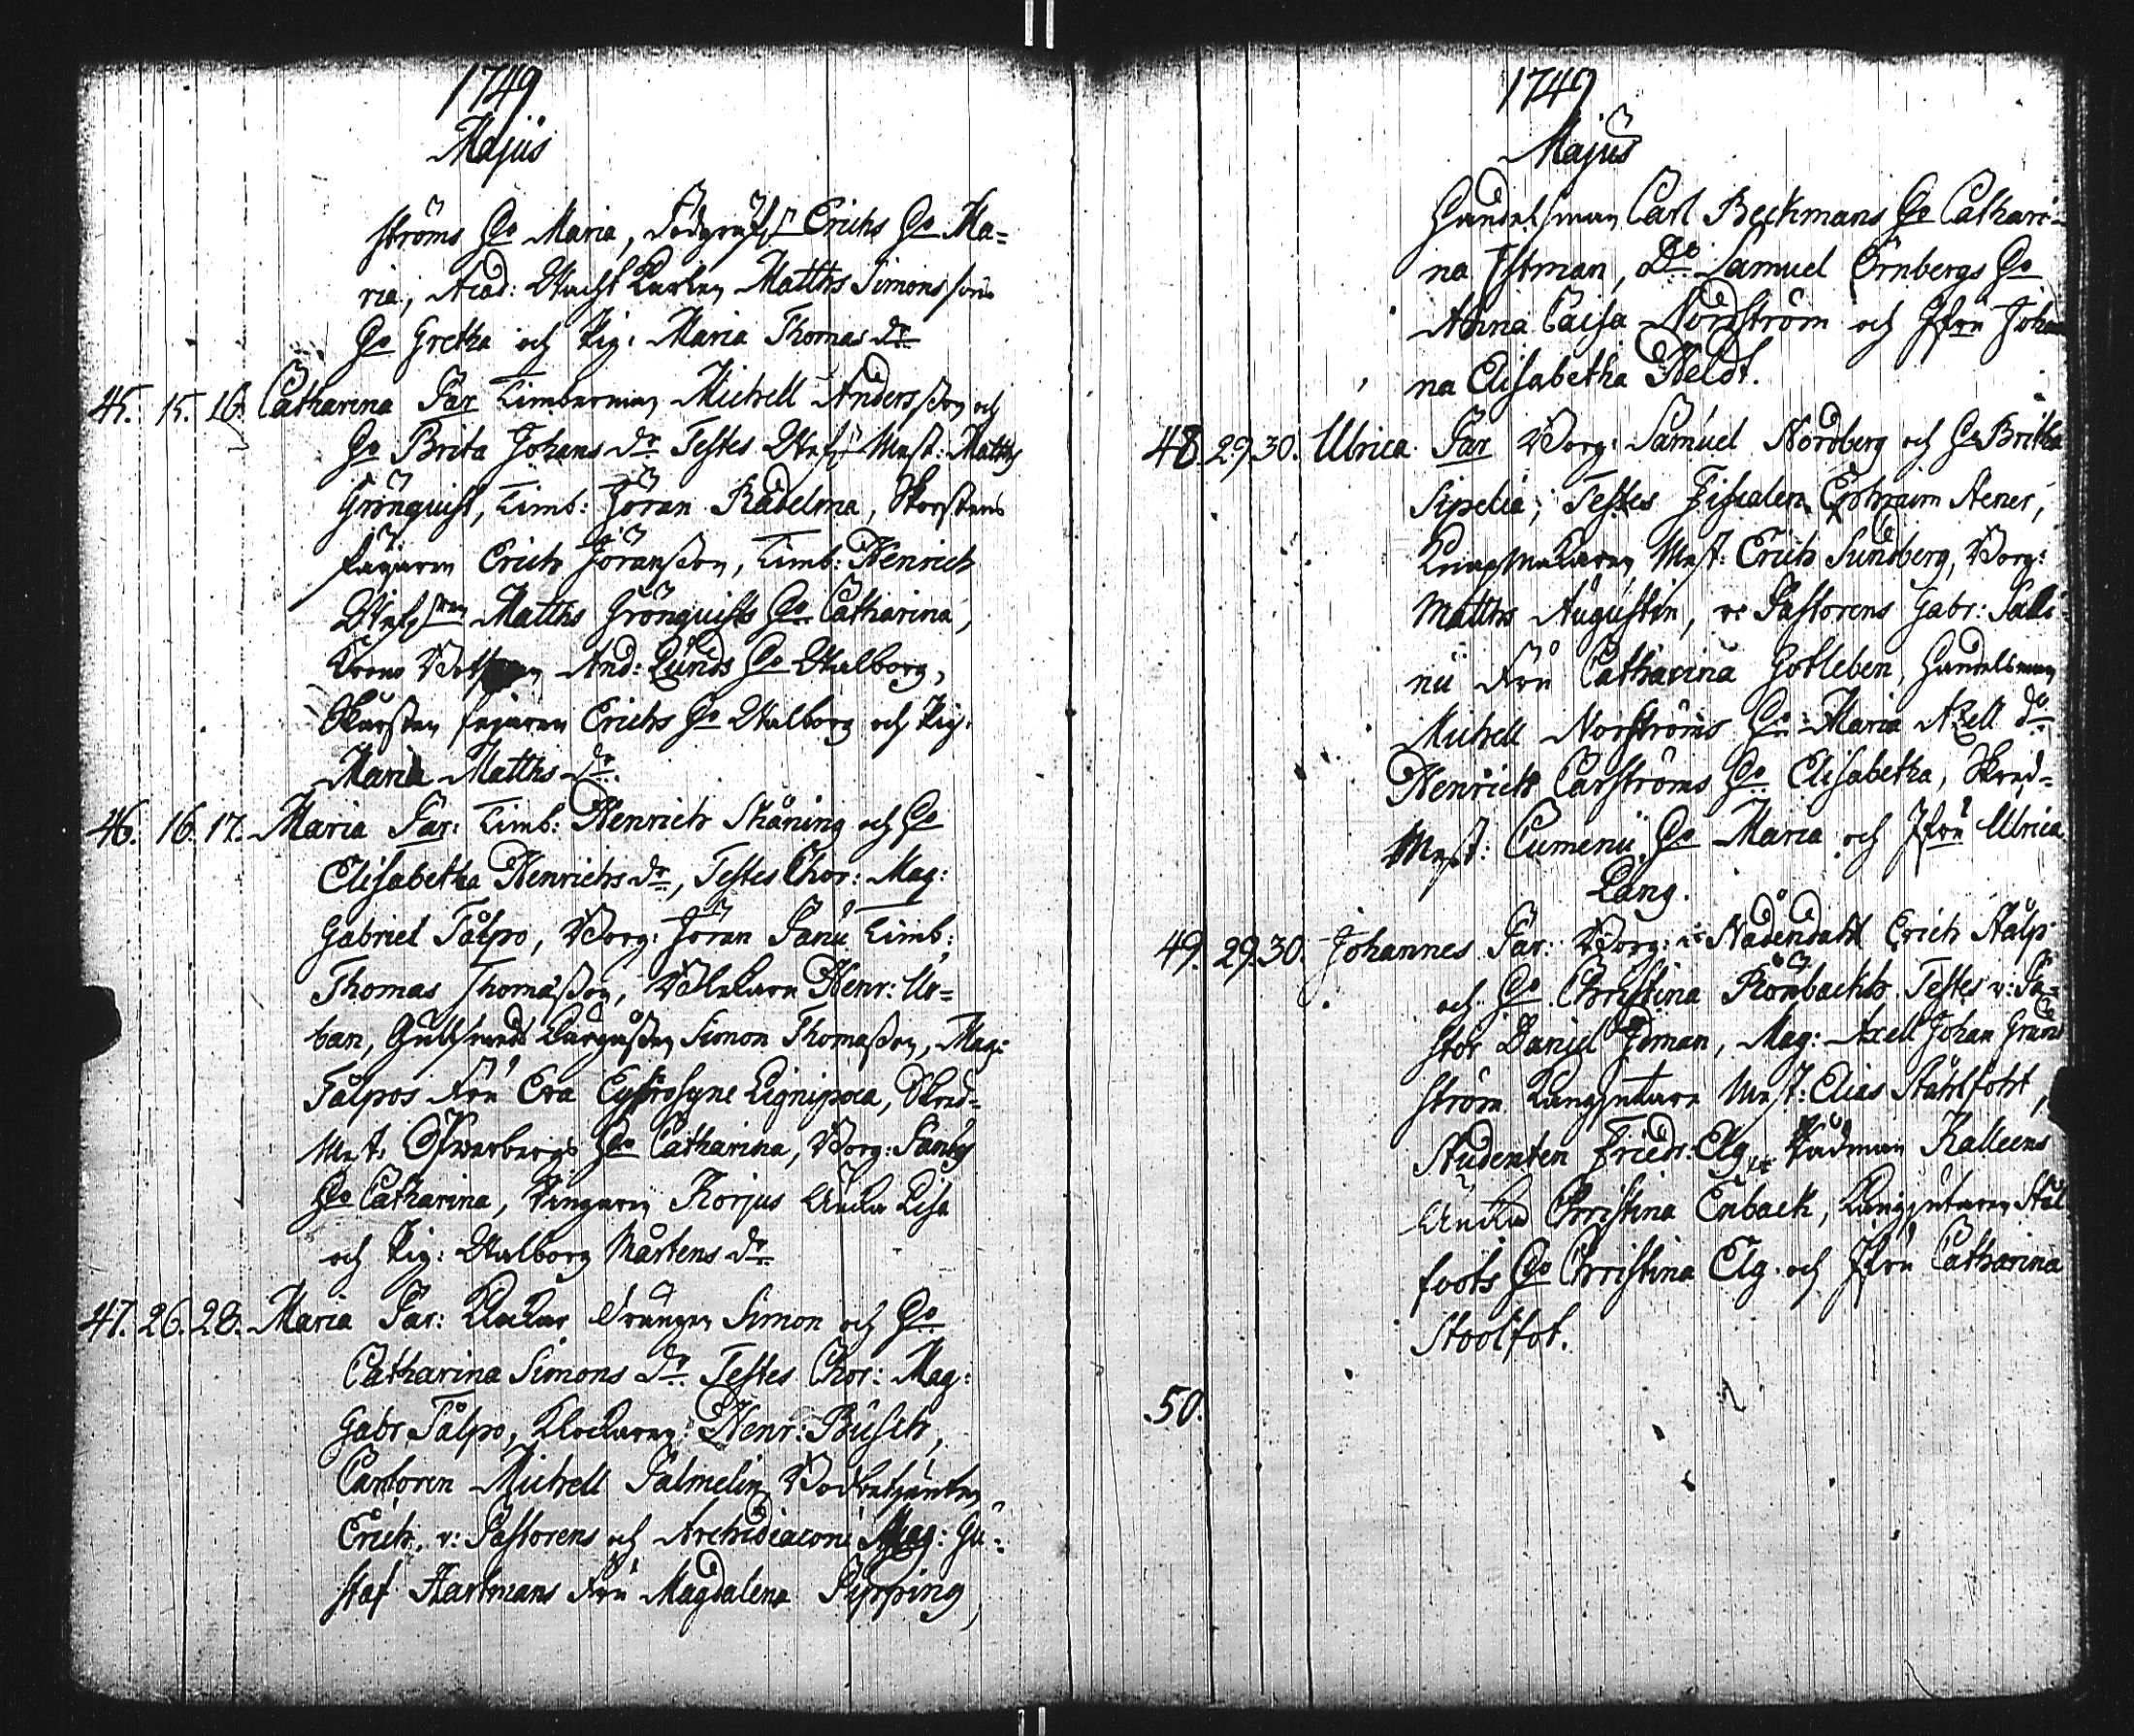 1749
Majus
ströms Ho Maria, Erichs Ho Ma=
ria, Acad: Wacht Karlen Matths Simons sons
Ho Gretha och Pig: Maria Thomas dr
45. 15. 16. Catharina Par Timberman Michell Andersson och
Ho Brita Johans dr Testes Mest: Matths
Grönquist, Timb: Jöran Rådelma, Skorstens
fäjaren Erich Jöransson, Timb: Henrich
Matths Grönquists Ho Catharina,
And: Lunds Ho Walborg,
Skorsten fejaren Erichs Ho Walborg och Pig:
Maria Matths dr
46. 16. 17. Maria Par: Timb: Henrich Skåning och Ho
Elisabetha Henrichs dr, Testes Chor: Mag:
Gabriel Tålpo, Borg: Jöran Panu Timb:
Thomas Thomasson, Henr: Ur=
ban, Gullsmeds Simon Thomasson, Mag:
Tålpos Fru Eva Eyfrosyne Lignipœa, Skred=
Mest: Catharina, Borg:
Ho Catharina, Korjus Enka Lisa
och Pig: Walborg Mårtens dr
47. 26. 28. Maria Par: Klockar Drängen Simon och Ho
Catharina Simons dr Testes Chor: Mag:
Gabr Tålpo, Klockaren: Henr: Busch,
Cantoren Michell Palmelin,
Erich, v: Pastorens och Archidiaconi Mag: Gu=
staf Hartmans Fru Magdalena Pipping,
1749
Majus
Handelsman Carl Beckmans Ho Cathari=
na Estman, Do Samuel Örnbergs Ho
Anna Caisa Nordström och Jfru Johan
na Elisabetha Heldt.
48. 29. 30. Ulrica Par Borg: Samuel Nordberg och Ho Britha
Sipelia; Testes Fiscalen Ephraim Aener,
Mest: Erich Sundberg, Borg:
Matths Augustin, v: Pastorens Gabr: Salli=
nii Fru Catharina Gotleben, Handelsman
Michell Norströms Ho: Maria Axell dr
Henrich Carströms Ho Elisabetha, Skred=
Mest: Cumenii Ho Maria och Jfru Ulrica
Lang.
49. 29. 30. Johannes Par: Borg: i Nådendahl Erich Stålp
och Ho Christina Rönbackch Testes v: Pa=
stor Daniel Idman, Mag: Axell Johan Grund
ström Kangjutare Mest: Elias Ståhlfoht,
Studenten Friedr: Elg, Rådman Kalleens
Enka Christina Enbaek, Kangjutaren Stål
foots Ho Christina Elg och Jfru Catharina
Stoolfot.
50.